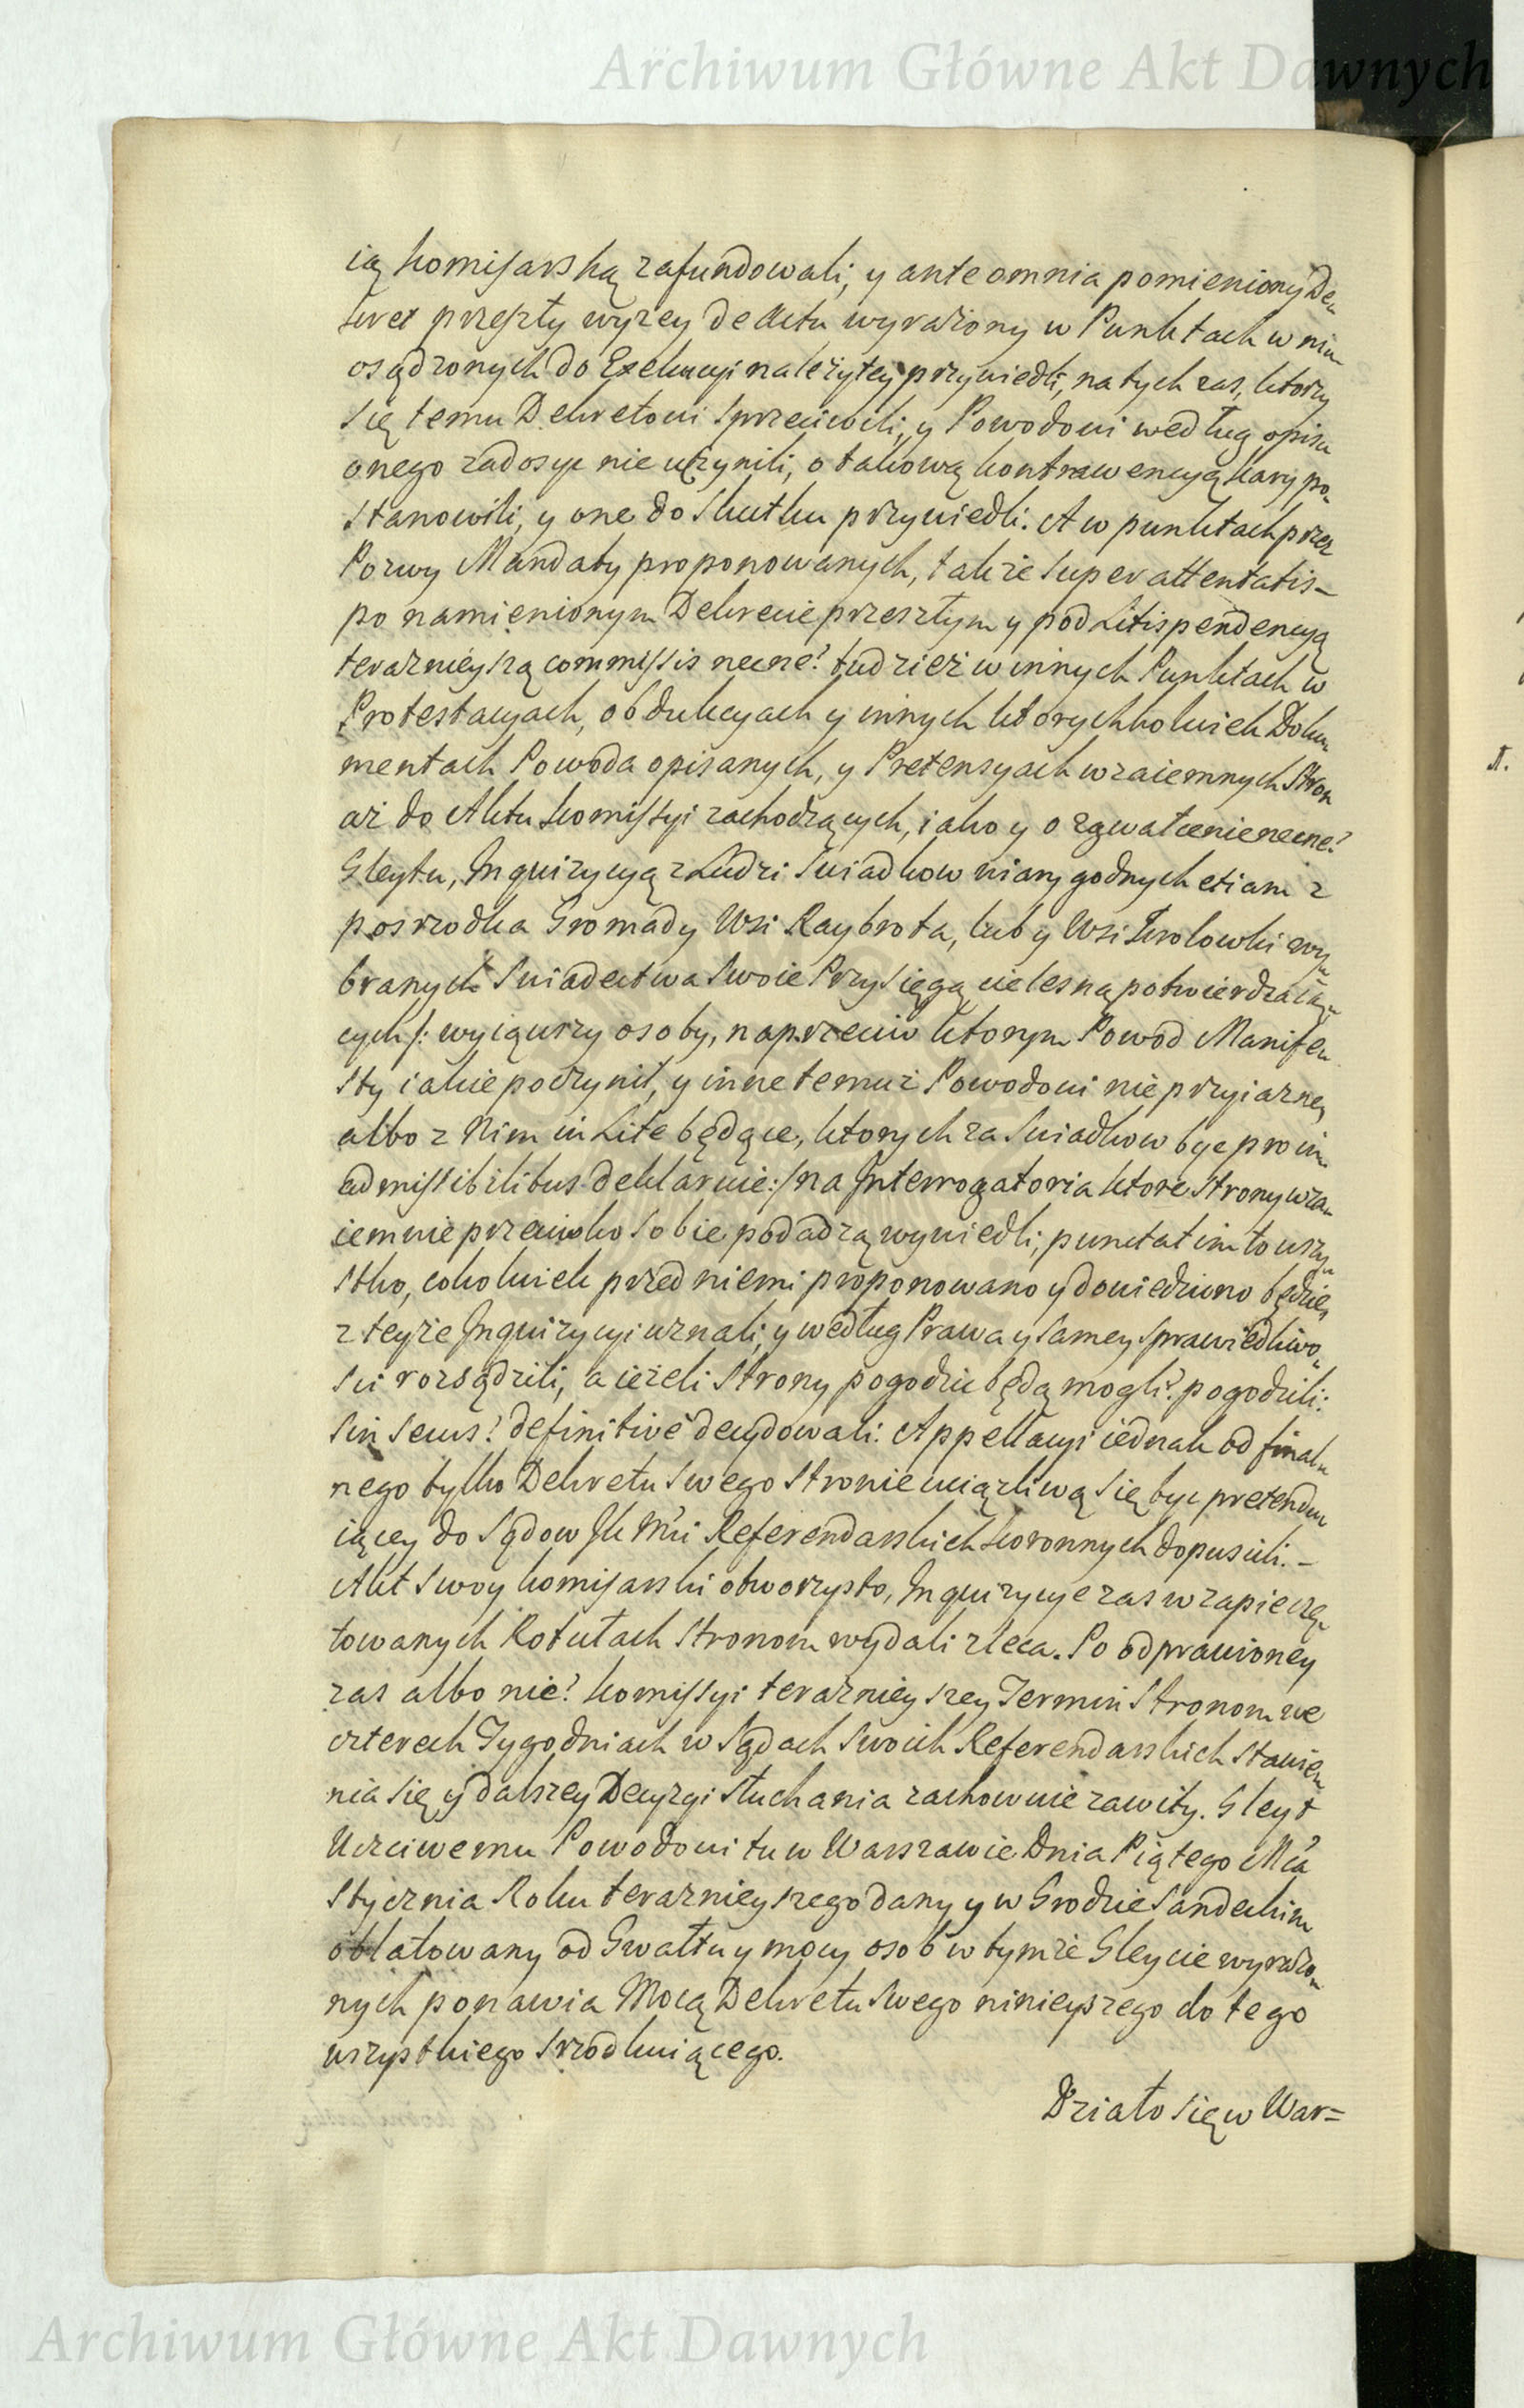 Archiwum Główne Akt Dawnych
ią Komisarską zafundowali, y ante omnia pomieniony De„
kret przeszły wyżey de Actu wyrażony w Punktach w nim
osądzonych do Exekucyi należytey przywiedli, na tych zas, ktorzy
się temu Dekretowi sprzeciwili, y Powodowi według opisu
onego zadosyc nie uczynili, o takową kontrawencyą kary po„
stanowili, y one do skutku przywiedli. A w punktach przez
Pozwy Mandaty proponowanych, także super attentatis –
po namienionym Dekrecie przeszłym y pod Litispendencyą
teraznieyszą commissis necne? tudzież w innych Punktach w
Protestacyach, obdukcyach y innych ktorychkolwiek Doku
mentach Powoda opisanych, y Pretensyach wzaiemnych Stron
aż do Aktu Komissyi zachodzących, iako y o zgwałcenie necne?
Gleytu, Inquizycyą z Ludzi Swiadkow wiary godnych etiam z
posrzodka Gromady Wsi Raybrota, lub y Wsi Krolowki wy„
branych Swiadectwa swoie Przysięgą cielesną potwierdzaią„
cych /: wyiąwszy osoby, naprzeciw ktorym Powod Manife„
sty iakie poczynił, y inne temuż Powodowi nieprzyiazne,
albo z Nim in Lite będące, ktorych za Swiadkow byc pro in„
admissibilibus deklaruie :/ na Interrogatoria ktore Strony wza„
iemnie przeciwko sobie podadzą wywiedli, punctatim to wszy„
stko, cokolwiek przed niemi proponowano y dowiedziono będzie,
z teyże Inquizycyi uznali, y według Prawa y samey sprawiedliwo„
sci rozsądzili, a ieżeli Strony pogodzic będą mogli? pogodzili:
sin secus? definitivè decydowali: Appellacyi iednak od final„
nego tylko Dekretu swego stronie uciążliwą się byc pretendu
iącey do Sądow JK Mci Referendarskich Koronnych dopuscili. –
Akt swoy Komisarski otworzysto, Inquizycye zas w zapieczę„
towanych Rotułach Stronom wydali zleca. Po odprawioney
zas albo nie? Komissyi teraznieyszey Termin Stronom we
czterech Tygodniach w Sądach swoich Referendarskich stawie„
nia się y dalszey Decyzyi słuchania zachowuie zawity. Gleyt
Uczciwemu Powodowi tu w Warszawie Dnia Piątego Mca
Stycznia Roku teraznieyszego dany y w Grodzie Sandeckim
oblatowany od Gwałtu y mocy osob w tymże Gleycie wyrażo„
nych ponawia Mocą Dekretu swego ninieyszego do tego
wszystkiego srzodkuiącego.
Działo się w War=
Archiwum Główne Akt Dawnych